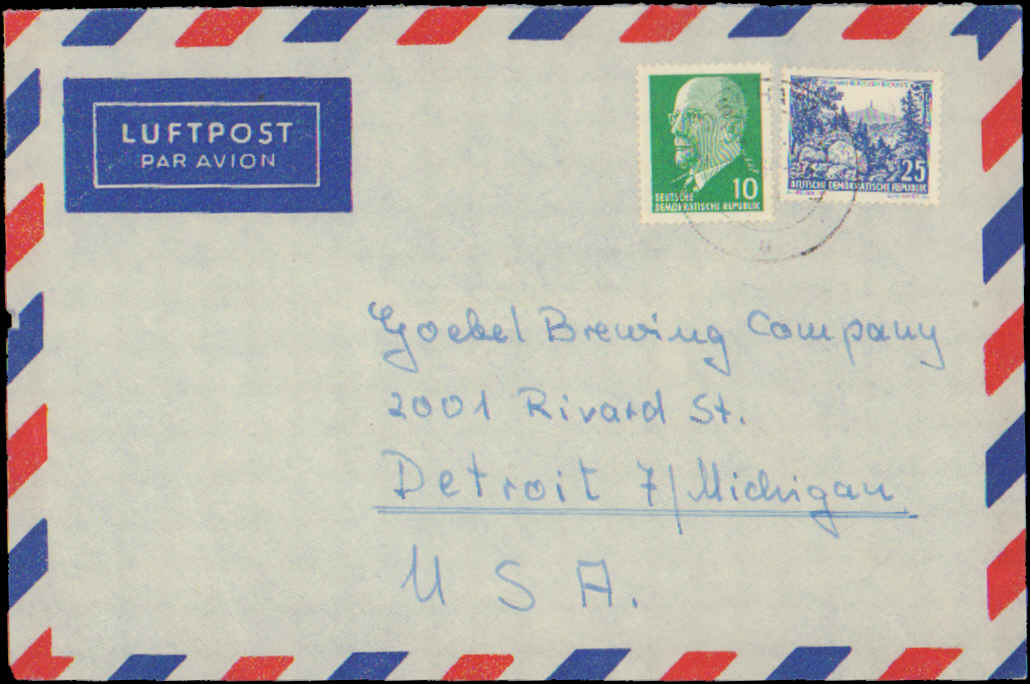 LUFTPOST
PAR AVION
10
DEUTSCHE
DEMOKRATISCHE REPUBLIK
25
DEUTSCHE DEMOKRATISCHE REPUBLIK
Goebel Brewing Company
2001 Rivard St.
Detroit 7/Michigan
U S A.